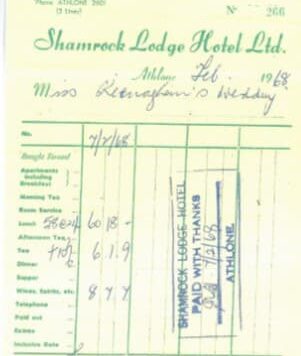 Phone ATHLONE 2601
(2 Lines)
No 266
Shamrock Lodge Hotel Ltd.
Athlone Feb. 1968
Miss Keenaghan's Wedding
No. 7/2/68
Brought Forward
Apartments
including
Breakfast
Morning Tea
Room Service
Lunch 58@21/- 60 18 -
Afternoon Tea
Tax +10% 6.1.9
Dinner
Supper
Wines, Spirits, etc. 8 7 7
Telephone
Paid out
Extras
Inclusive Rate
SHAMROCK LODGE HOTEL
PAID WITH THANKS
7/2/68
ATHLONE.